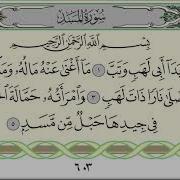 سُورَةُ المَسَدِ
بِسْمِ اللَّهِ الرَّحْمَٰنِ الرَّحِيمِ
يَدَا أَبِي لَهَبٍ وَتَبَّ ١ مَا أَغْنَىٰ عَنْهُ مَالُهُ وَمَ
صْلَىٰ نَارًا ذَاتَ لَهَبٍ ٣ وَامْرَأَتُهُ حَمَّالَةَ الْ
فِي جِيدِهَا حَبْلٌ مِّن مَّسَدٍ ٥
٦٠٣